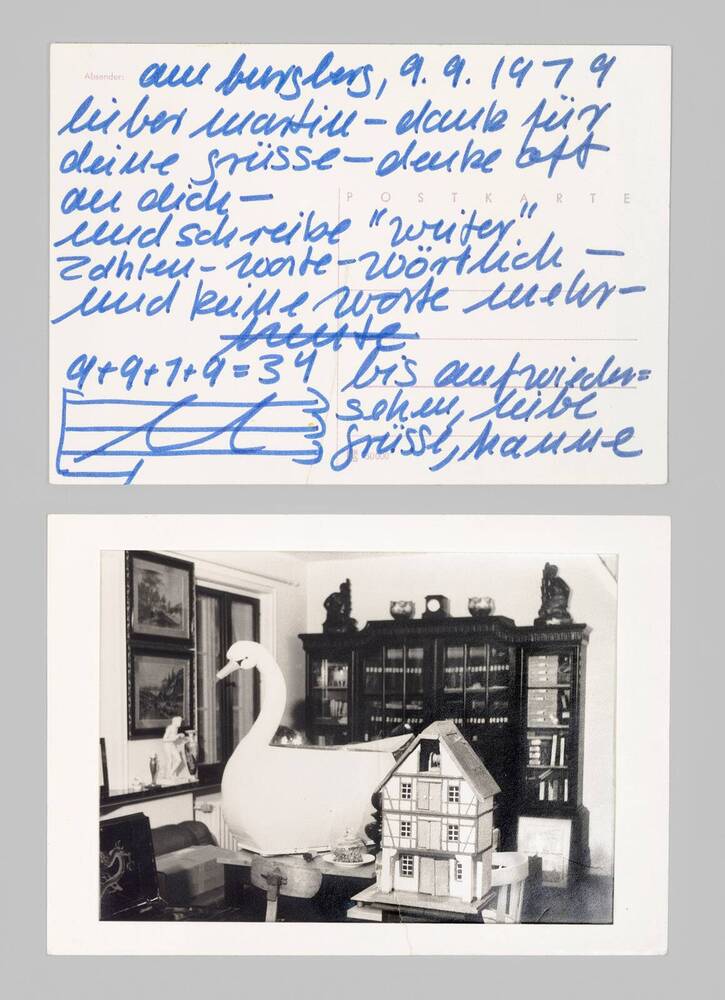 Absender:
am burgberg, 9.9.1979
lieber martin – dank für
deine grüsse – denke oft
an dich –
POSTKARTE
und schreibe "weiter"
zahlen – worte – wörtlich –
und keine worte mehr –
heute
9+9+7+9=34
bis aufwieder=
sehen, liebe
grüsse, hanne